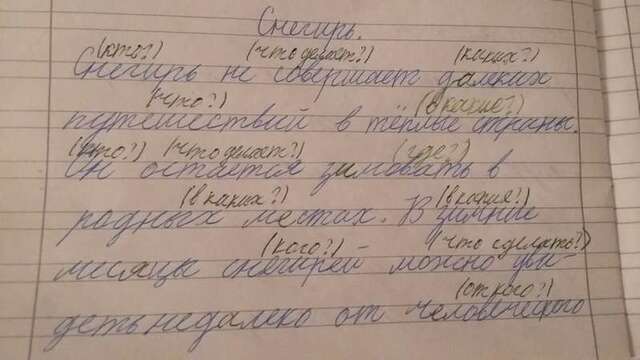 Снегирь.
(кто?) (что делает?) (каких?)
Снегирь не совершает далких
(что?) (в какие?)
путешествий в тёплые страны.
(кто?) (что делает?) (где?)
Он остаётся зимовать в
(в каких?) (в какия?)
родных местах. В зимние
(кого?) (что сделать?)
месяцы снегирей можно уви-
(от кого?)
деть недалеко от человеческого